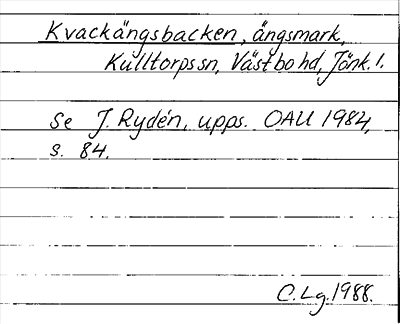 Kvackängsbacken, ängsmark,
Kulltorps sn, Västbo hd, Jönk. l.
Se J. Rydén, upps. OAU 1984,
s. 84.
C. Lg. 1988.